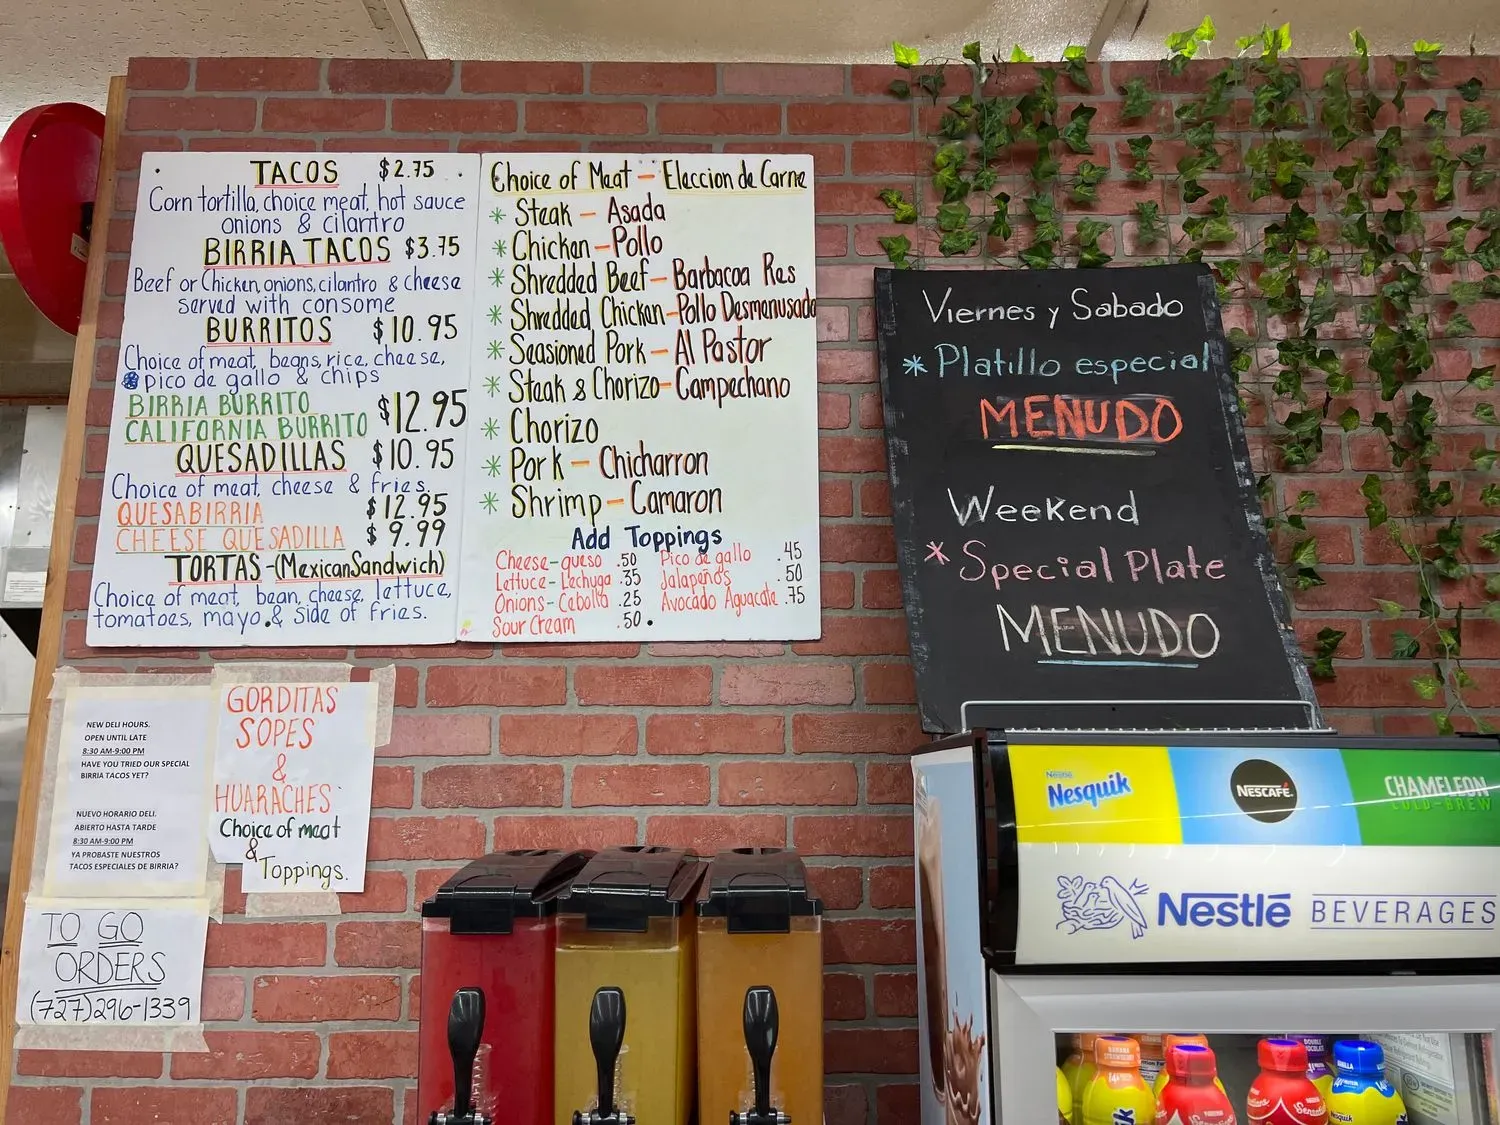 TACOS $2.75
Corn tortilla, choice meat, hot sauce
onions & cilantro
BIRRIA TACOS $3.75
Beef or Chicken, onions, cilantro & cheese
served with consome
BURRITOS $10.95
Choice of meat, beans, rice, cheese,
pico de gallo & chips
BIRRIA BURRITO
CALIFORNIA BURRITO $12.95
QUESADILLAS $10.95
Choice of meat, cheese & fries.
QUESABIRRIA $12.95
CHEESE QUESADILLA $9.99
TORTAS -(Mexican Sandwich)
Choice of meat, bean, cheese, lettuce,
tomatoes, mayo & side of fries.
Choice of Meat - Eleccion de Carne
* Steak - Asada
* Chicken - Pollo
* Shredded Beef - Barbacoa Res
* Shredded Chicken - Pollo Desmenusado
* Seasioned Pork - Al Pastor
* Steak & Chorizo - Campechano
* Chorizo
* Pork - Chicharron
* Shrimp - Camaron
Add Toppings
Cheese-queso .50 Pico de gallo .45
Lettuce-Lechuga .35 Jalapeños .50
Onions-Cebolla .25 Avocado Aguacate .75
Sour Cream .50
Viernes y Sabado
* Platillo especial
MENUDO
Weekend
* Special Plate
MENUDO
NEW DELI HOURS.
OPEN UNTIL LATE
8:30 AM-9:00 PM
HAVE YOU TRIED OUR SPECIAL
BIRRIA TACOS YET?
NUEVO HORARIO DELI.
ABIERTO HASTA TARDE
8:30 AM-9:00 PM
YA PROBASTE NUESTROS
TACOS ESPECIALES DE BIRRIA?
GORDITAS
SOPES
&
HUARACHES
Choice of meat
&
Toppings.
TO GO
ORDERS
(727)296-1339
Nestlé
Nesquik
NESCAFÉ.
CHAMELEON
COLD-BREW
Nestlé BEVERAGES